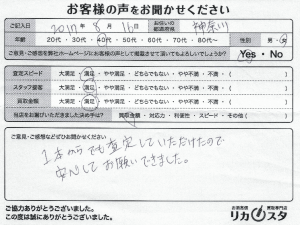 お客様の声をお聞かせください
ご記入日 2019年 8月 16日 お住いの都道府県 神奈川
年齢 20代・30代・40代・50代・60代・70代・80代〜 性別 男・女
ご意見・ご感想を弊社ホームページにお客様の声として掲載させて頂いてもよろしいでしょうか? Yes・No
査定スピード 大満足・満足・やや満足・どちらでもない・やや不満・不満 ( )
スタッフ接客 大満足・満足・やや満足・どちらでもない・やや不満・不満 ( )
買取金額 大満足・満足・やや満足・どちらでもない・やや不満・不満 ( )
当店をお選びいただきました決め手は? 買取金額・対応力・利便性・スピード・その他 ( )
ご意見・ご感想などぜひお聞かせください。
1本からでも査定していただけたので
安心してお願いできました。
ご協力ありがとうございました。
この度は誠にありがとうございました。
お酒買取 買取専門店
リカスタ